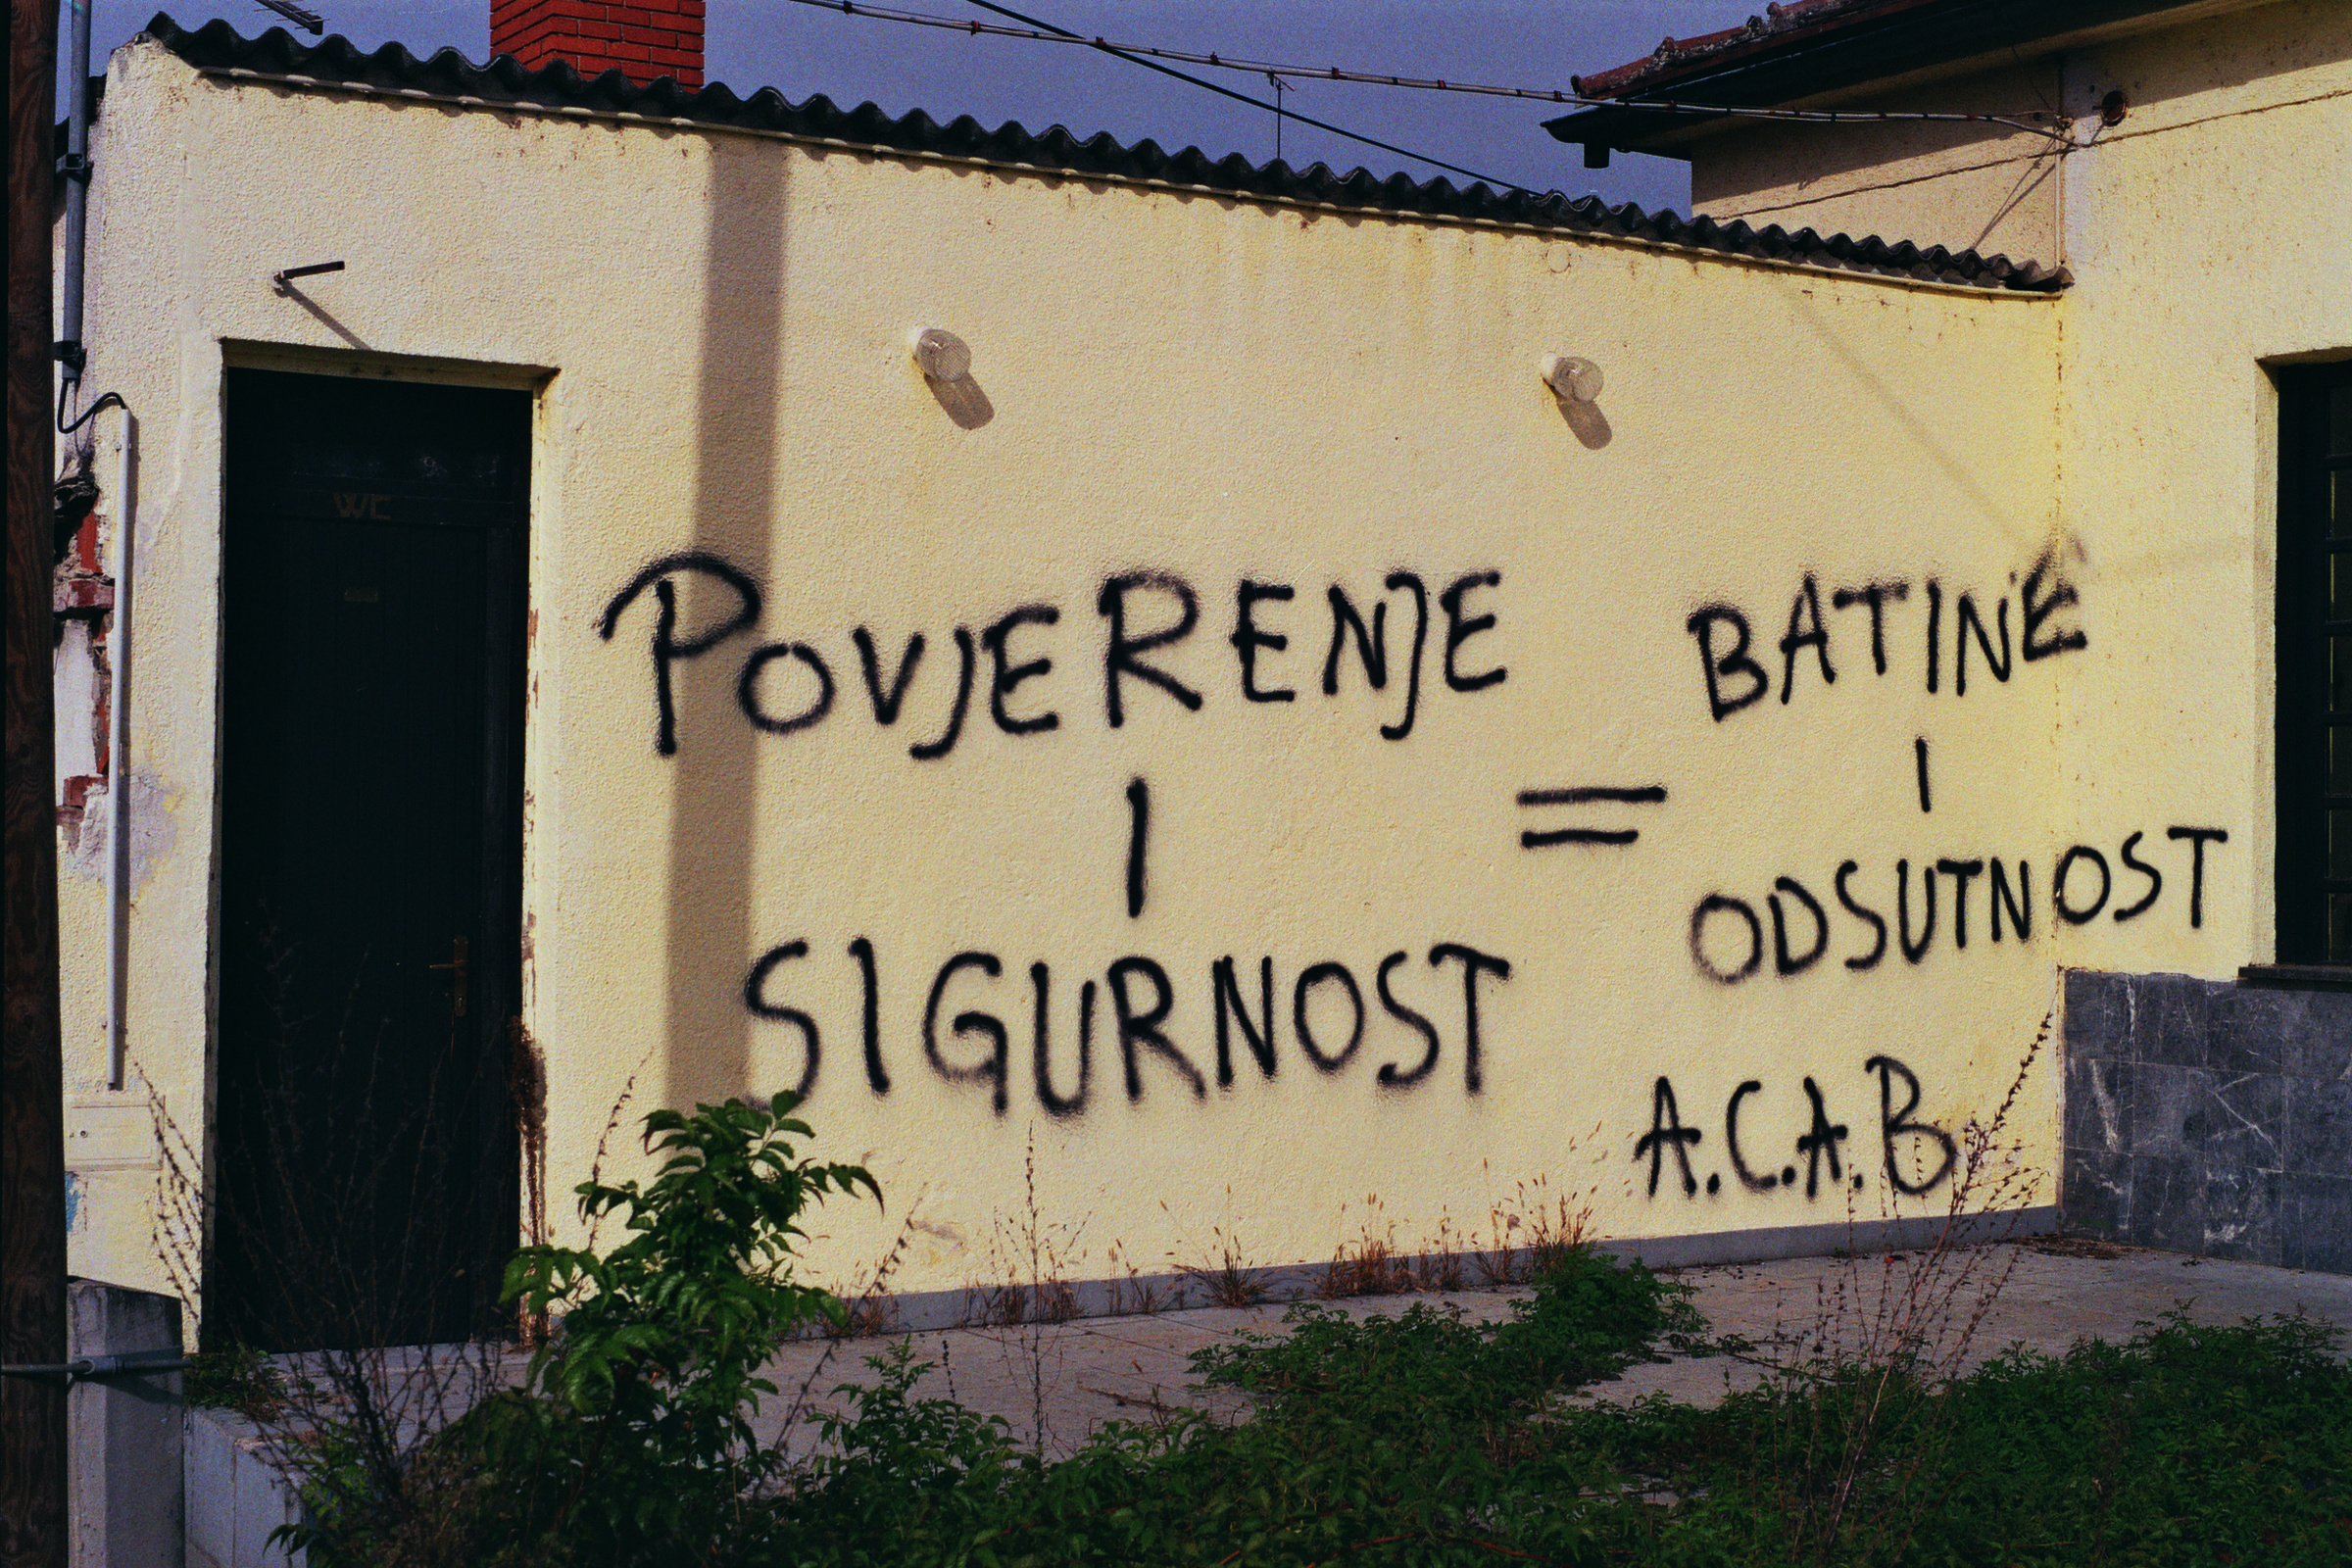 WC
POVJERENJE
I
SIGURNOST
=
BATINE
I
ODSUTNOST
A.C.A.B